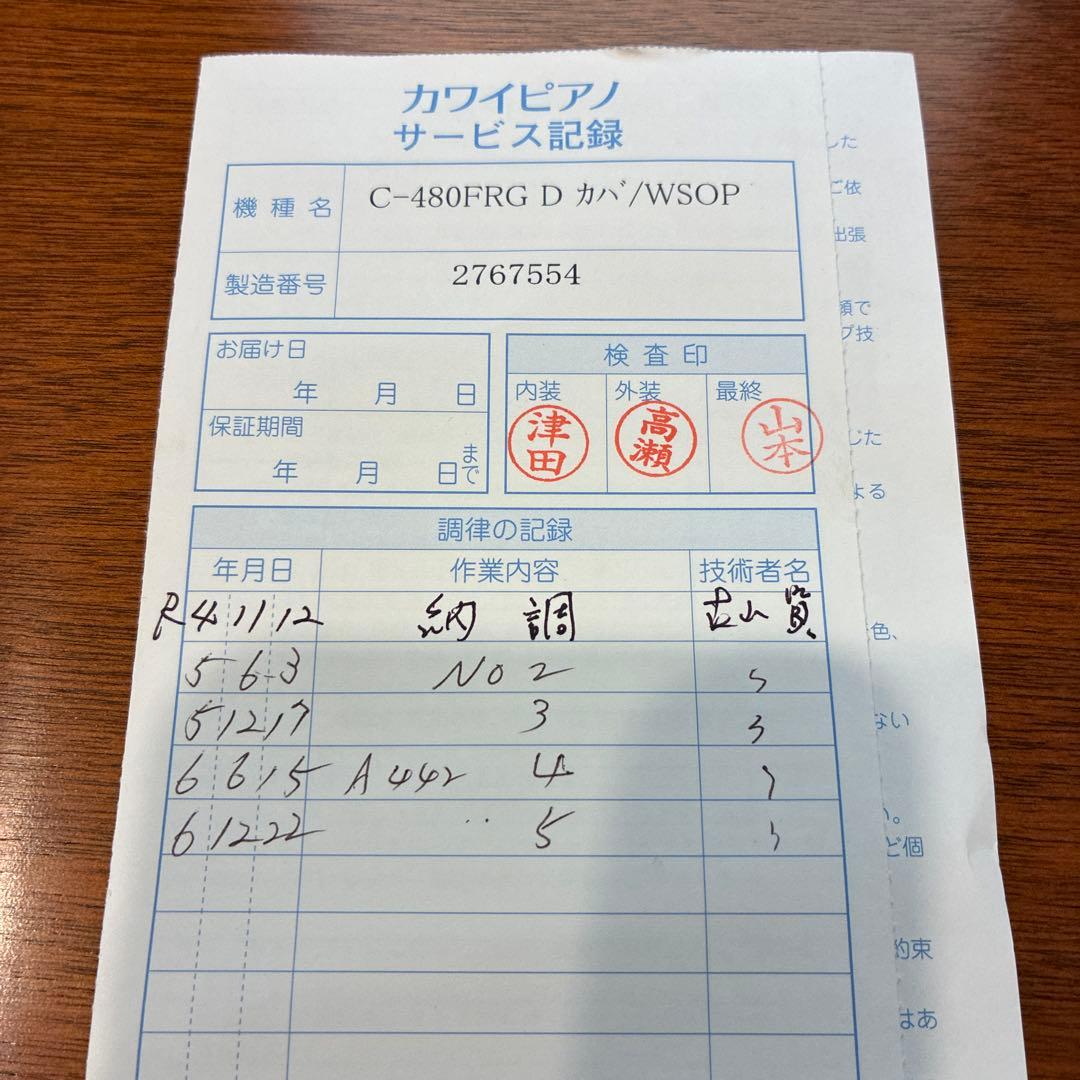 カワイピアノ
サービス記録
機種名 C-480FRG D カバ/WSOP
製造番号 2767554
お届け日
年 月 日
保証期間
年 月 日まで
検査印
内装 外装 最終
津田 高瀬 山本
調律の記録
年月日 作業内容 技術者名
R4 11 12 納調
5 6 3 NO 2
5 12 17 3
6 6 15 A442 4
6 12 22 〃 5
した
ご依
出張
頼で
プ技
じた
よる
色、
ない
い。
ど個
約束
はあ